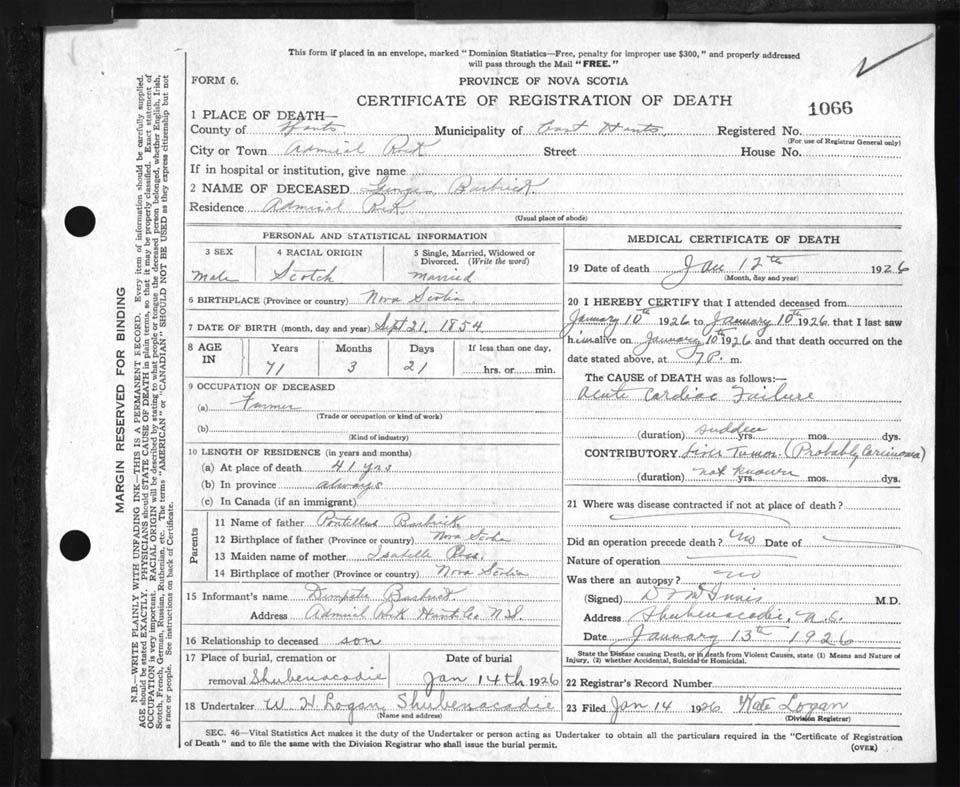 This form if placed in an envelope, marked "Dominion Statistics—Free, penalty for improper use $300," and properly addressed
will pass through the Mail "FREE."
FORM 6.
PROVINCE OF NOVA SCOTIA
CERTIFICATE OF REGISTRATION OF DEATH
1066
1 PLACE OF DEATH—
County of Hants Municipality of East Hants Registered No.
(For use of Registrar General only)
City or Town Admiral Rock Street House No.
If in hospital or institution, give name
2 NAME OF DECEASED Barbrick
Residence Admiral Rock
(Usual place of abode)
PERSONAL AND STATISTICAL INFORMATION
3 SEX 4 RACIAL ORIGIN 5 Single, Married, Widowed or Divorced. (Write the word)
Male Scotch Married
6 BIRTHPLACE (Province or country) Nova Scotia
7 DATE OF BIRTH (month, day and year) Sept 21, 1854
8 AGE IN Years Months Days If less than one day,
71 3 21 hrs. or min.
9 OCCUPATION OF DECEASED
(a) Farmer
(Trade or occupation or kind of work)
(b)
(Kind of industry)
10 LENGTH OF RESIDENCE (in years and months)
(a) At place of death 41 yrs
(b) In province always
(c) In Canada (if an immigrant)
Parents
11 Name of father Barbrick
12 Birthplace of father (Province or country) Nova Scotia
13 Maiden name of mother Isabelle
14 Birthplace of mother (Province or country) Nova Scotia
15 Informant's name Barbrick
Address Admiral Rock Hants Co. N.S.
16 Relationship to deceased son
17 Place of burial, cremation or Date of burial
removal Shubenacadie Jan 14th 1926
18 Undertaker W. H Logan, Shubenacadie
(Name and address)
MEDICAL CERTIFICATE OF DEATH
19 Date of death Jan 12th 1926
(Month, day and year)
20 I HEREBY CERTIFY that I attended deceased from
January 10th 1926 to January 10th 1926, that I last saw
him alive on January 10th 1926 and that death occurred on the
date stated above, at 7 P. m.
The CAUSE OF DEATH was as follows:—
Acute Cardiac Failure
(duration) sudden yrs. mos. dys.
CONTRIBUTORY Liver Tumor. (Probably Carcinoma)
(duration) not known yrs. mos. dys.
21 Where was disease contracted if not at place of death?
Did an operation precede death? No Date of
Nature of operation
Was there an autopsy? no
(Signed) D McInnis M.D.
Address Shubenacadie, N.S.
Date January 13th 1926
State the Disease causing Death, or in death from Violent Causes, state (1) Means and Nature of
Injury, (2) whether Accidental, Suicidal or Homicidal.
22 Registrar's Record Number
23 Filed Jan 14 1926 Kate Logan
(Division Registrar)
SEC. 46—Vital Statistics Act makes it the duty of the Undertaker or person acting as Undertaker to obtain all the particulars required in the "Certificate of Registration
of Death" and to file the same with the Division Registrar who shall issue the burial permit.
(OVER)
MARGIN RESERVED FOR BINDING
N.B.—WRITE PLAINLY WITH UNFADING INK—THIS IS A PERMANENT RECORD. Every item of information should be carefully supplied.
AGE should be stated EXACTLY. PHYSICIANS should STATE CAUSE OF DEATH in plain terms, so that it may be properly classified. Exact statement of
OCCUPATION is very important. RACIAL ORIGIN will be described by stating to what people or tongue the deceased person belonged, whether English, Irish,
Scotch, French, German, Russian, Ruthenian, etc. The terms "AMERICAN" or "CANADIAN" SHOULD NOT BE USED as they express citizenship but not
a race or people. See instructions on back of Certificate.